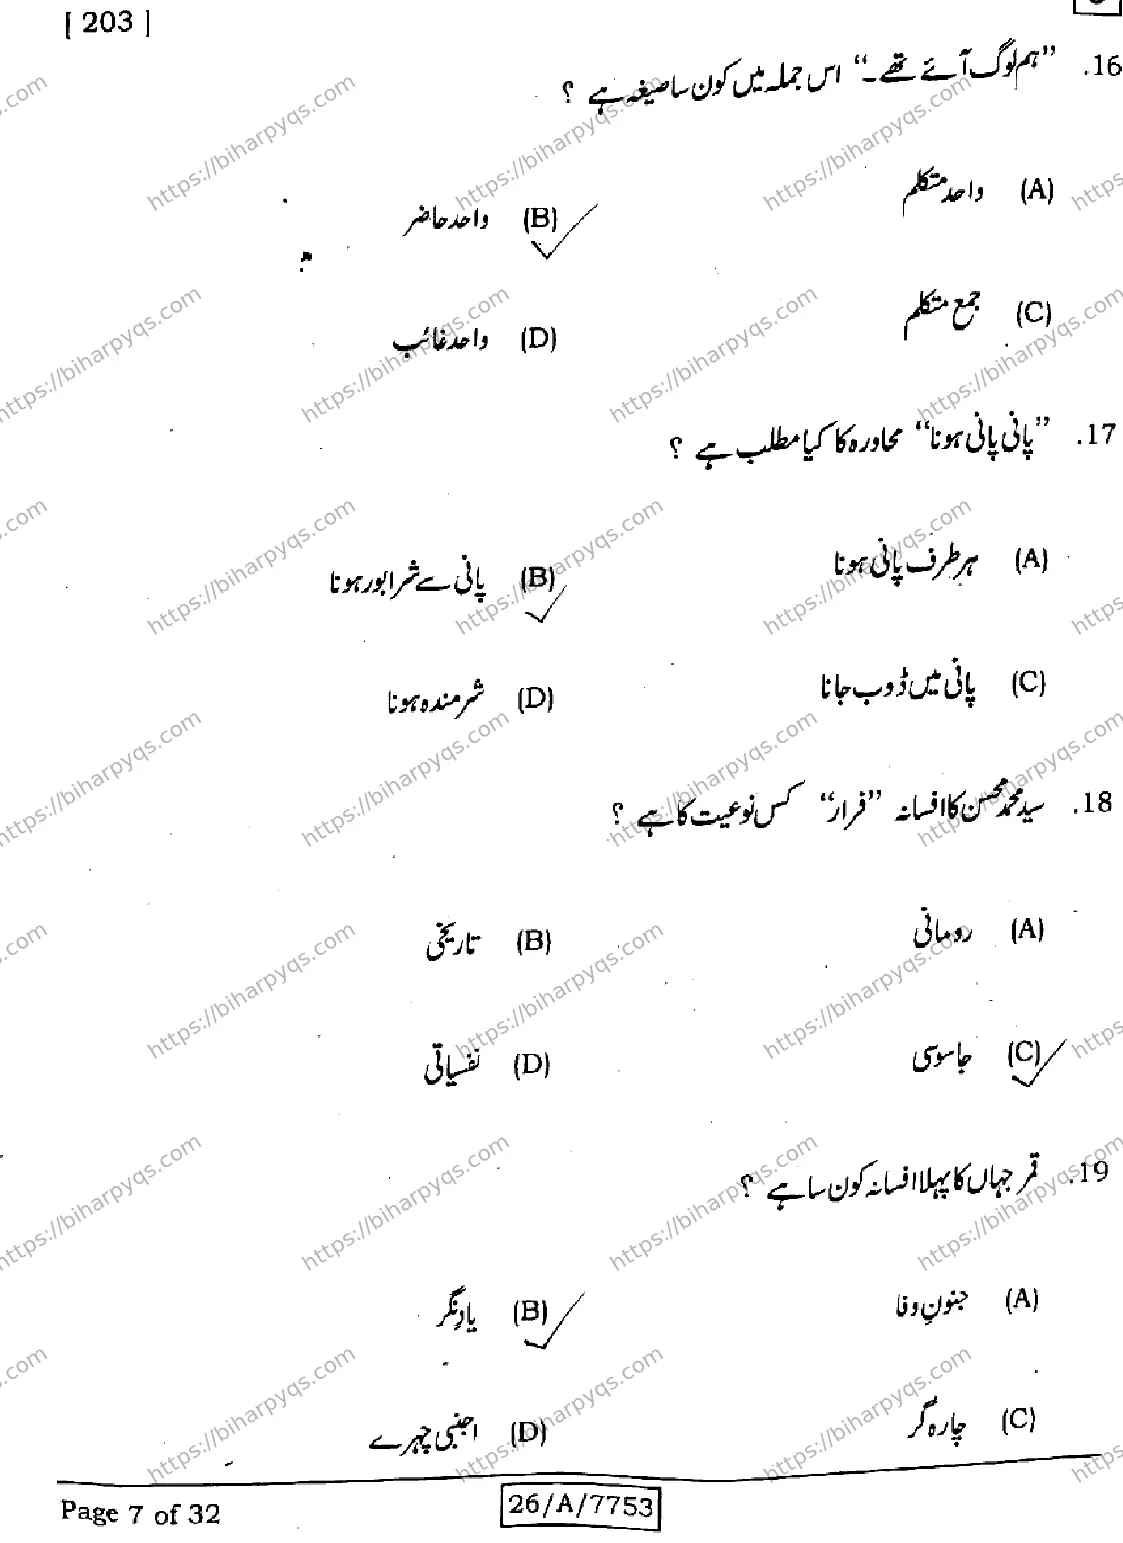 [ 203 ]
16. ”ہم لوگ آئے تھے۔“ اس جملہ میں کون سا صیغہ ہے ؟
(A) واحد متکلم
(B) واحد حاضر
(C) جمع متکلم
(D) واحد غائب
17. ”پانی پانی ہونا“ محاورہ کا کیا مطلب ہے ؟
(A) ہر طرف پانی ہونا
(B) پانی سے شرابور ہونا
(C) پانی میں ڈوب جانا
(D) شرمندہ ہونا
18. سید محمد محسن کا افسانہ ”فرار“ کس نوعیت کا ہے ؟
(A) رومانی
(B) تاریخی
(C) جاسوسی
(D) نفسیاتی
19. قمر جہاں کا پہلا افسانہ کون سا ہے ؟
(A) جنونِ وفا
(B) یاد نگر
(C) چارہ گر
(D) اجنبی چہرے
Page 7 of 32
26/A/7753
https://biharpyqs.com